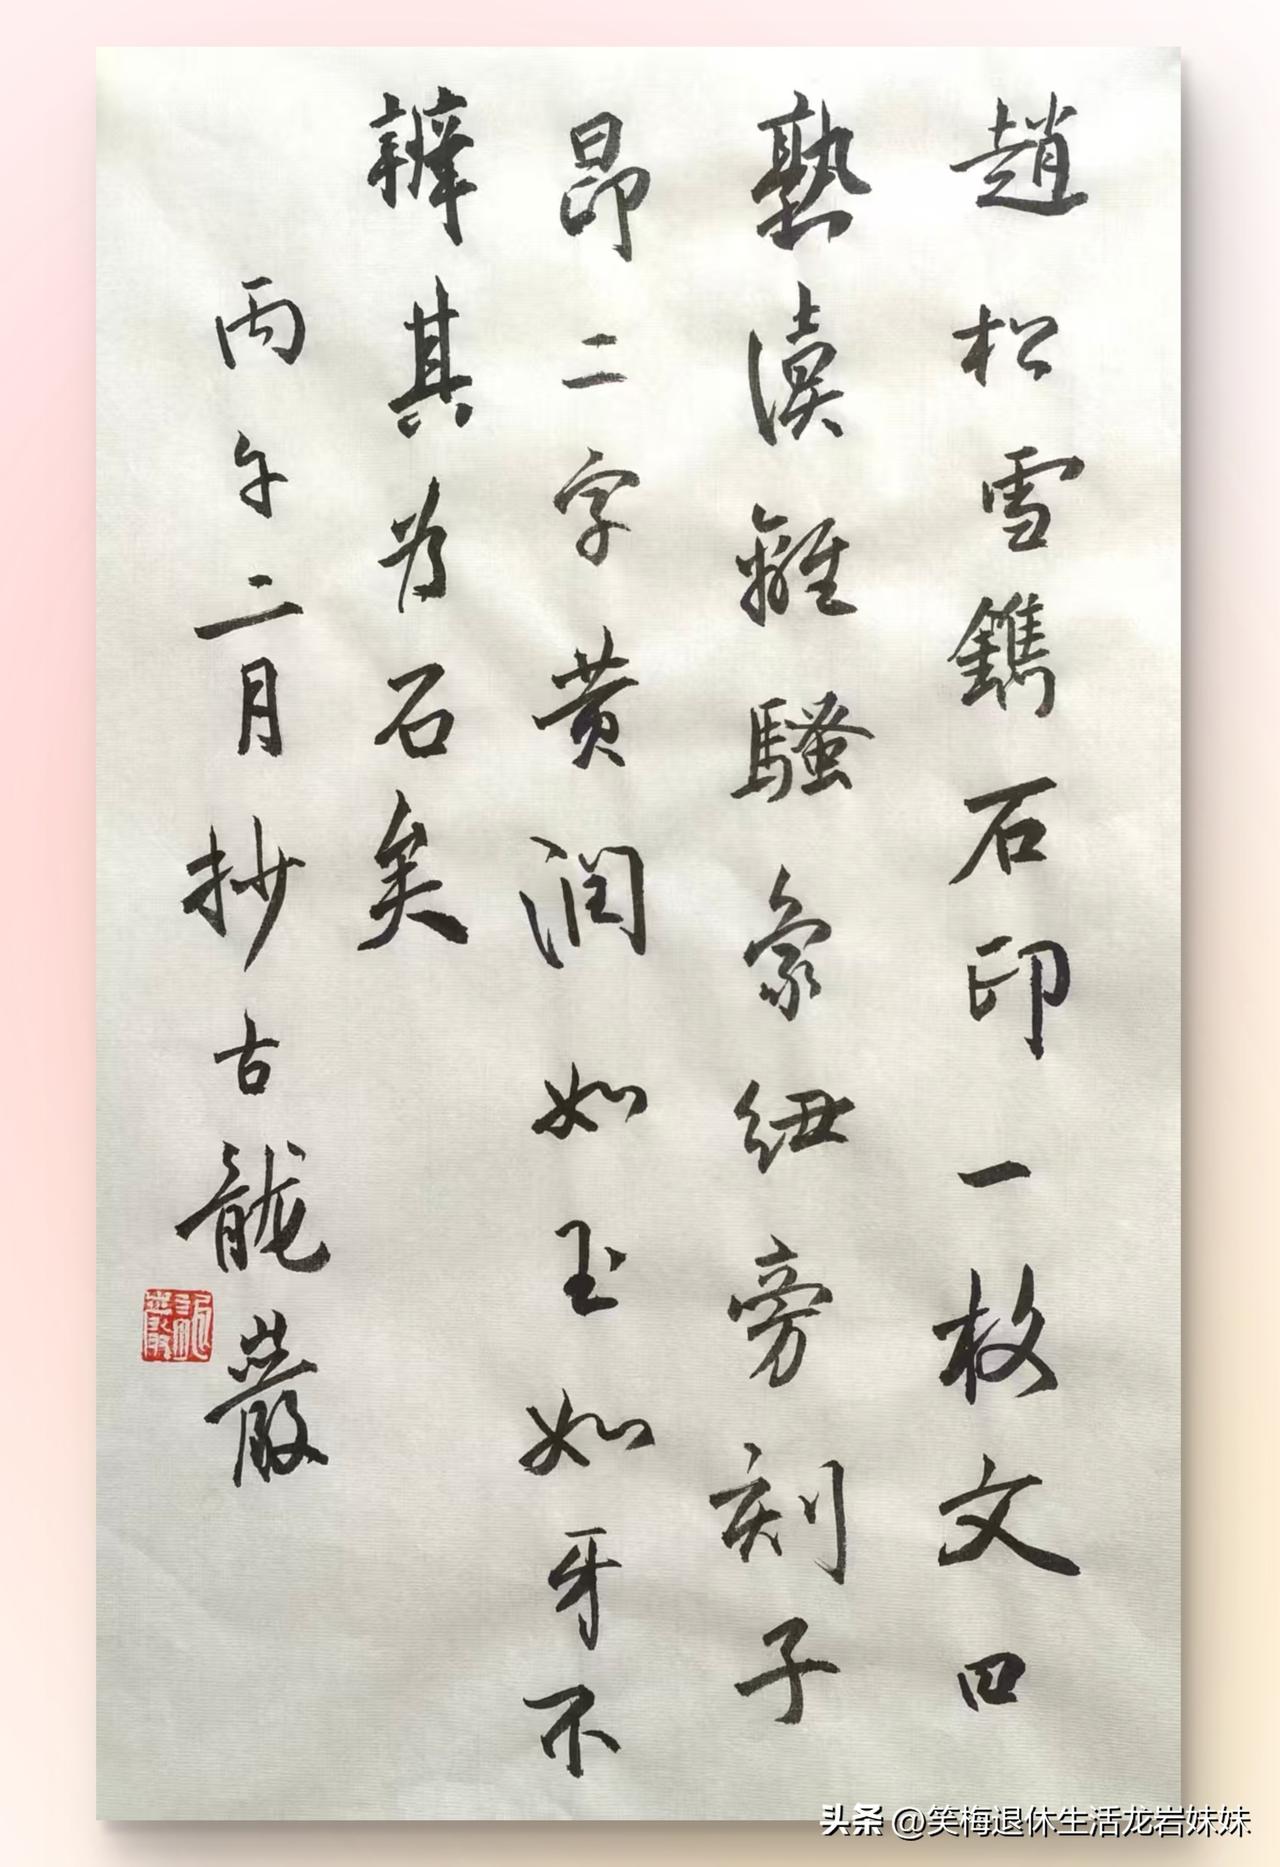 趙松雪鐫石印一枚文曰
熟讀離騷象紐旁刻子
昂二字黄润如玉如牙不
辨其为石矣
丙午二月抄古龍巖
头条 @笑梅退休生活龙岩妹妹